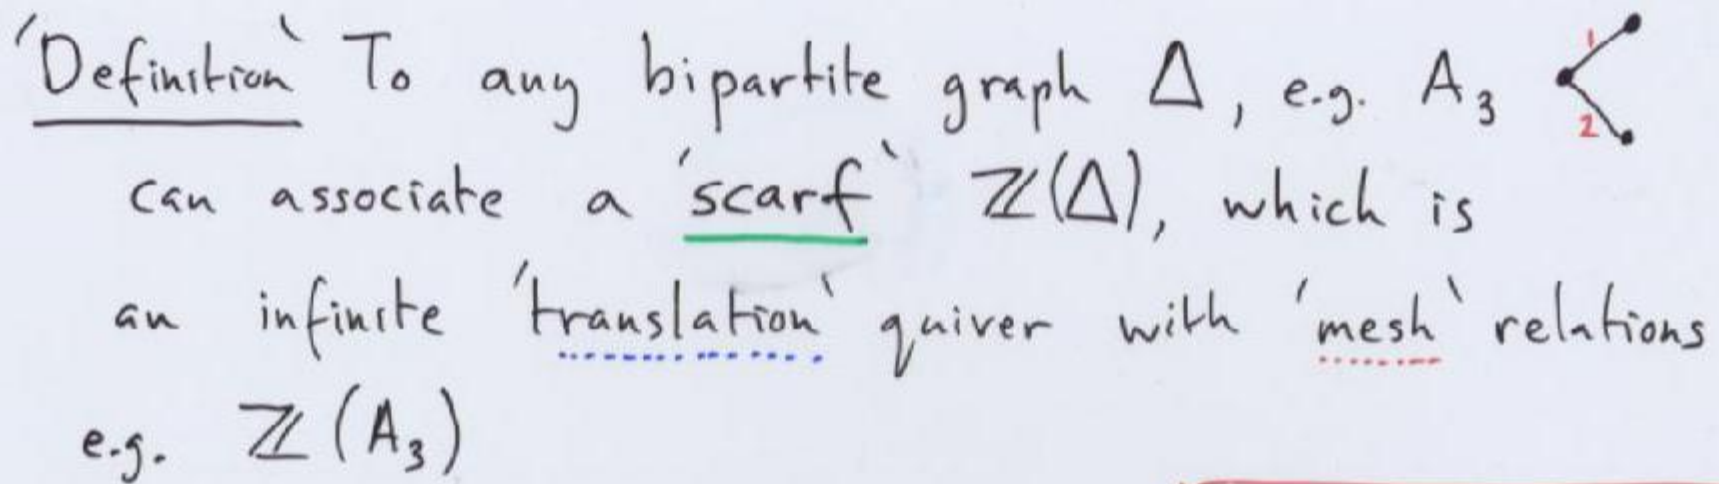 'Definition` To any bipartite graph Δ, e.g. A₃ 1 2
can associate a 'scarf` ℤ(Δ), which is
an infinite 'translation` quiver with 'mesh` relations
e.g. ℤ(A₃)